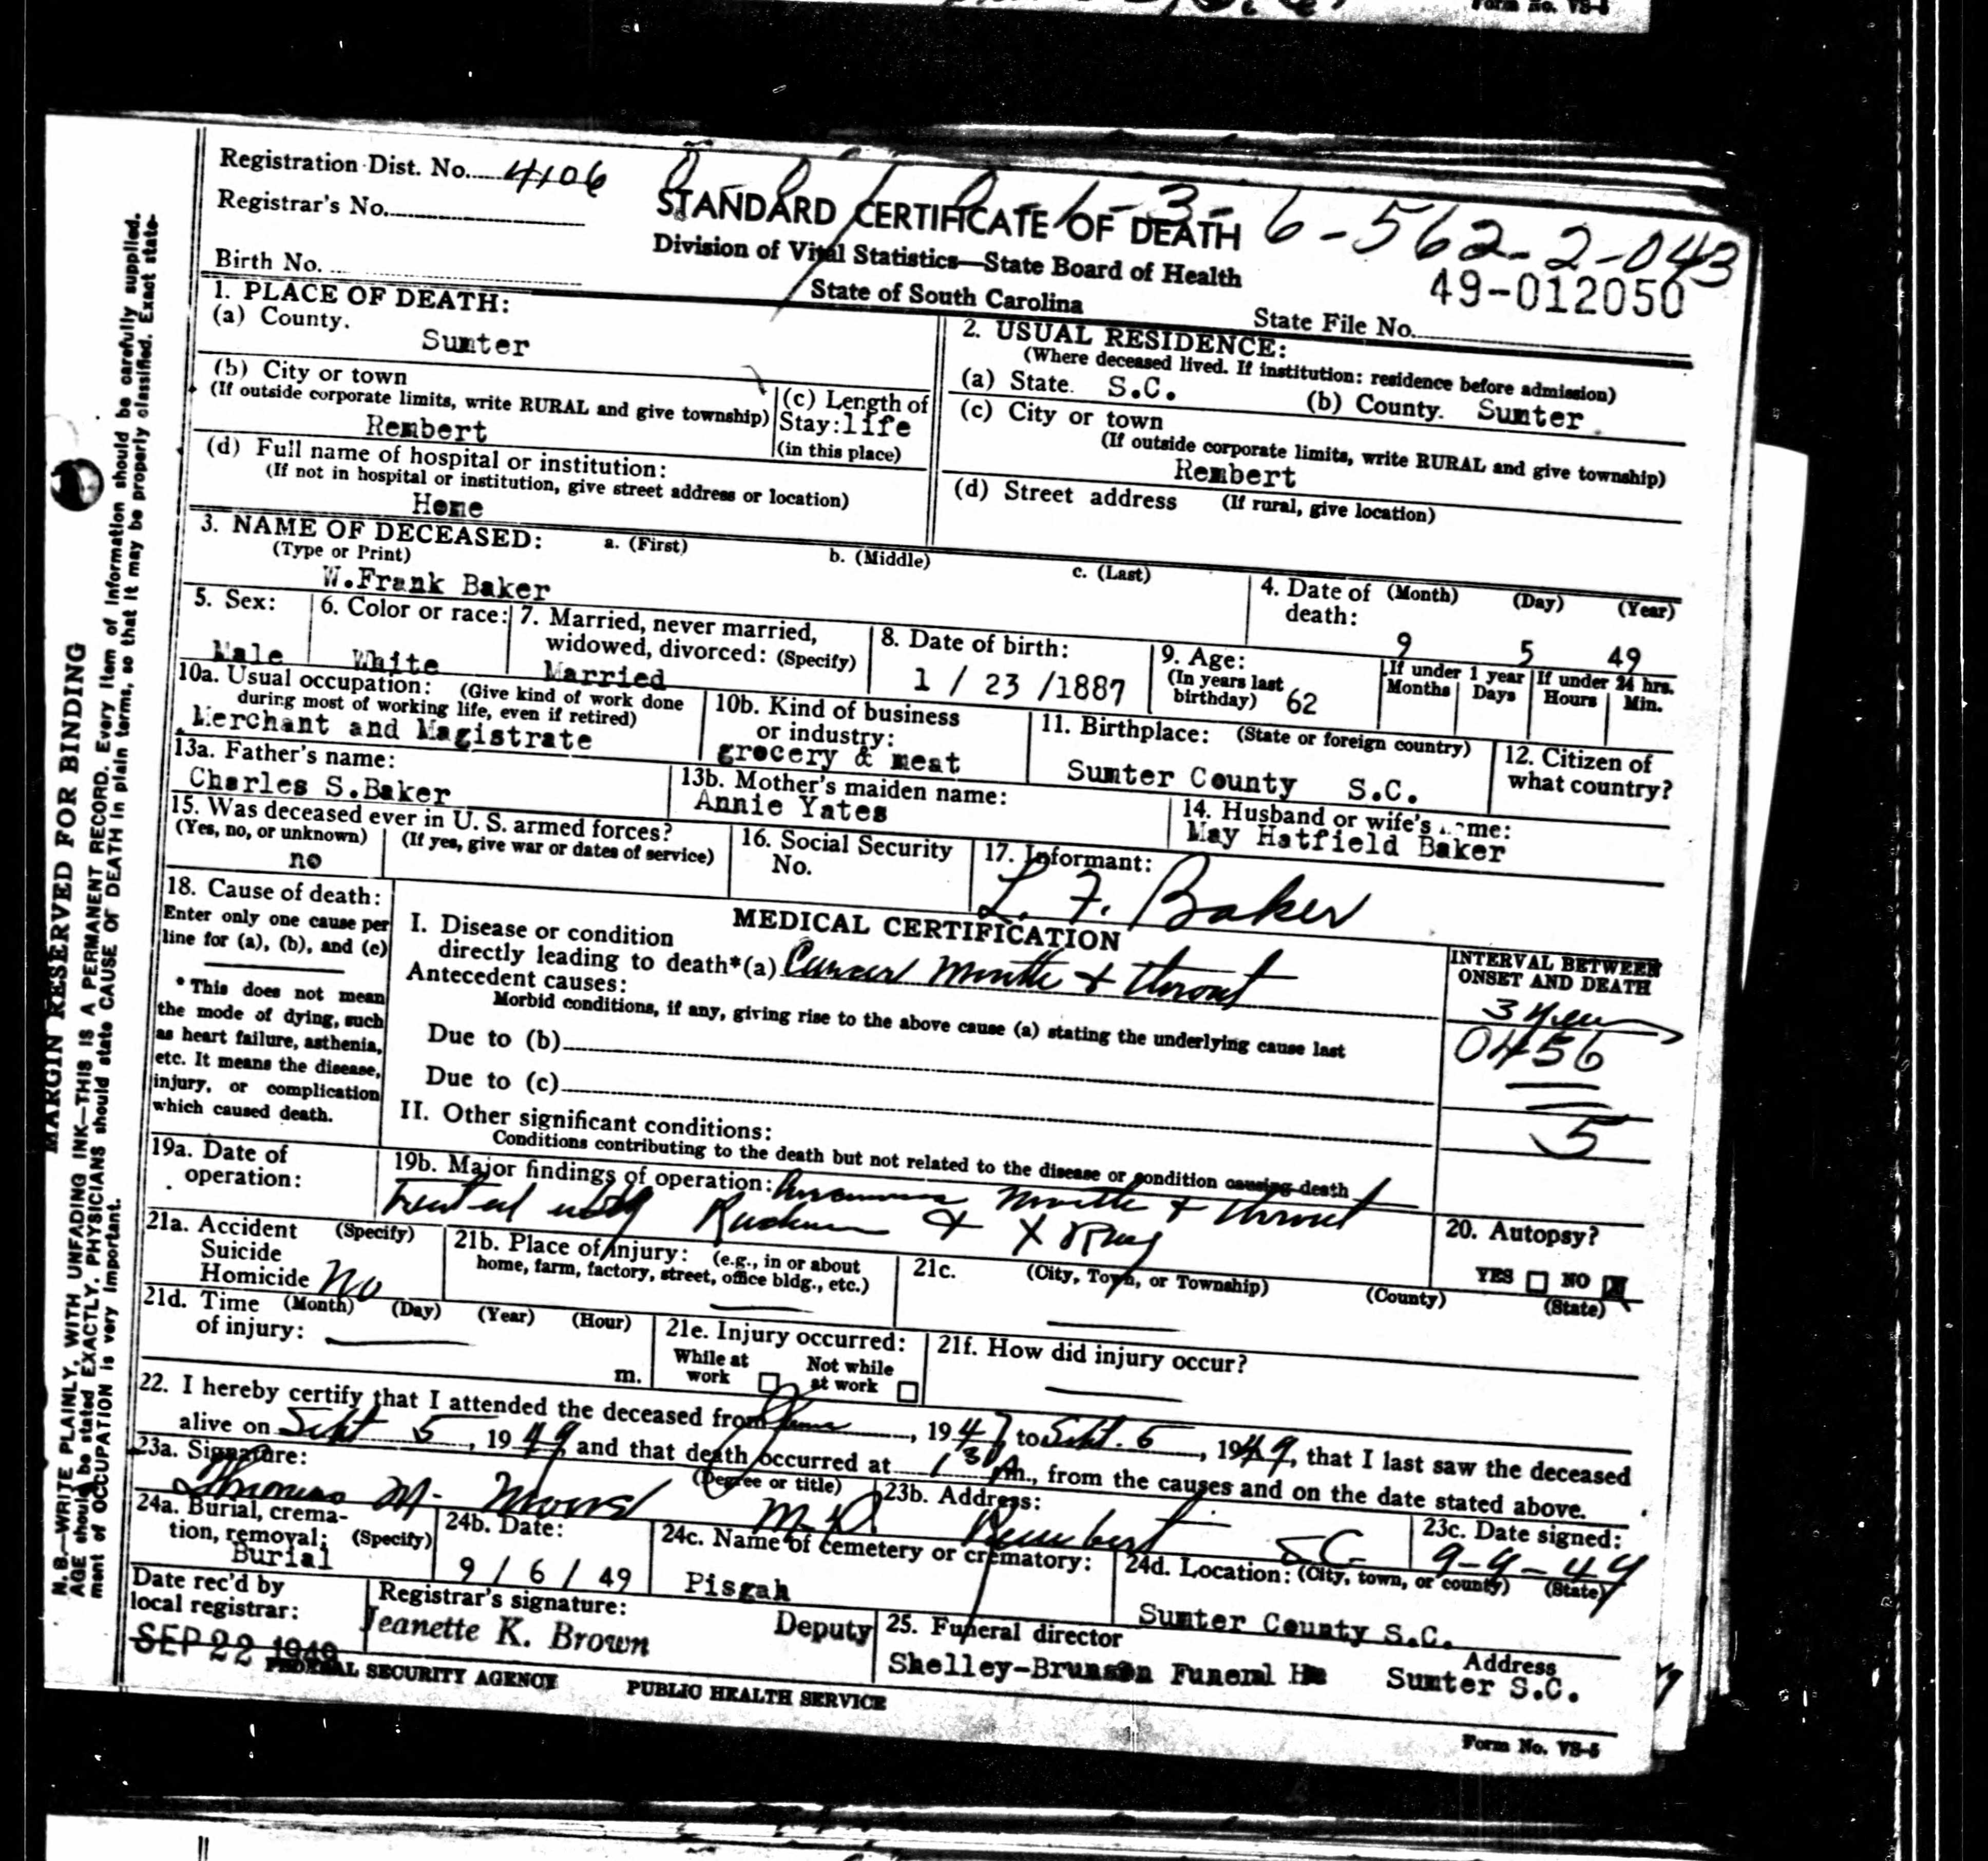 Form No. VS-5
Registration Dist. No. 4106
Registrar's No.
Birth No.
STANDARD CERTIFICATE OF DEATH
6-562-2-043
Division of Vital Statistics—State Board of Health
State of South Carolina
49-012050
State File No.
1. PLACE OF DEATH:
(a) County.
Sumter
(b) City or town
(If outside corporate limits, write RURAL and give township)
Rembert
(c) Length of
Stay: life
(in this place)
(d) Full name of hospital or institution:
(If not in hospital or institution, give street address or location)
Home
2. USUAL RESIDENCE:
(Where deceased lived. If institution: residence before admission)
(a) State. S.C. (b) County. Sumter
(c) City or town
(If outside corporate limits, write RURAL and give township)
Rembert
(d) Street address (If rural, give location)
3. NAME OF DECEASED: a. (First) b. (Middle) c. (Last)
(Type or Print)
W.Frank Baker
4. Date of (Month) (Day) (Year)
death:
9 5 49
5. Sex:
Male
6. Color or race:
White
7. Married, never married,
widowed, divorced: (Specify)
Married
8. Date of birth:
1 / 23 /1887
9. Age:
(In years last
birthday) 62
If under 1 year
Months Days
If under 24 hrs.
Hours Min.
10a. Usual occupation: (Give kind of work done
during most of working life, even if retired)
Merchant and Magistrate
10b. Kind of business
or industry:
grocery & meat
11. Birthplace: (State or foreign country)
Sumter County S.C.
12. Citizen of
what country?
13a. Father's name:
Charles S.Baker
13b. Mother's maiden name:
Annie Yates
14. Husband or wife's name:
May Hatfield Baker
15. Was deceased ever in U. S. armed forces?
(Yes, no, or unknown) (If yes, give war or dates of service)
no
16. Social Security
No.
17. Informant:
L. F. Baker
18. Cause of death:
Enter only one cause per
line for (a), (b), and (c)
* This does not mean
the mode of dying, such
as heart failure, asthenia,
etc. It means the disease,
injury, or complication
which caused death.
MEDICAL CERTIFICATION
I. Disease or condition
directly leading to death*(a) Cancer Mouth & throat
Antecedent causes:
Morbid conditions, if any, giving rise to the above cause (a) stating the underlying cause last
Due to (b)
Due to (c)
II. Other significant conditions:
Conditions contributing to the death but not related to the disease or condition causing death
INTERVAL BETWEEN
ONSET AND DEATH
3 years
0456
5
19a. Date of
operation:
19b. Major findings of operation: mouth & throat
Treated with Radium & X Ray
20. Autopsy?
YES NO
21a. Accident (Specify)
Suicide
Homicide No
21b. Place of injury: (e.g., in or about
home, farm, factory, street, office bldg., etc.)
21c. (City, Town, or Township) (County) (State)
21d. Time (Month) (Day) (Year) (Hour)
of injury:
m.
21e. Injury occurred:
While at
work
Not while
at work
21f. How did injury occur?
22. I hereby certify that I attended the deceased from June, 1947 to Sept. 5, 1949, that I last saw the deceased
alive on Sept 5, 1949, and that death occurred at 1 30 m., from the causes and on the date stated above.
23a. Signature: (Degree or title)
Thomas M. M.D.
23b. Address:
Rembert SC
23c. Date signed:
9-9-49
24a. Burial, crema-
tion, removal: (Specify)
Burial
24b. Date:
9 / 6 / 49
24c. Name of cemetery or crematory:
Pisgah
24d. Location: (City, town, or county) (State)
Sumter County S.C.
Date rec'd by
local registrar:
SEP 22 1949
Registrar's signature:
Jeanette K. Brown Deputy
25. Funeral director Address
Shelley-Brunson Funeral Hm Sumter S.C.
FEDERAL SECURITY AGENCY PUBLIC HEALTH SERVICE
Form No. VS-5
MARGIN RESERVED FOR BINDING
N. B.—WRITE PLAINLY, WITH UNFADING INK—THIS IS A PERMANENT RECORD. Every item of information should be carefully supplied.
AGE should be stated EXACTLY. PHYSICIANS should state CAUSE OF DEATH in plain terms, so that it may be properly classified. Exact state-
ment of OCCUPATION is very important.